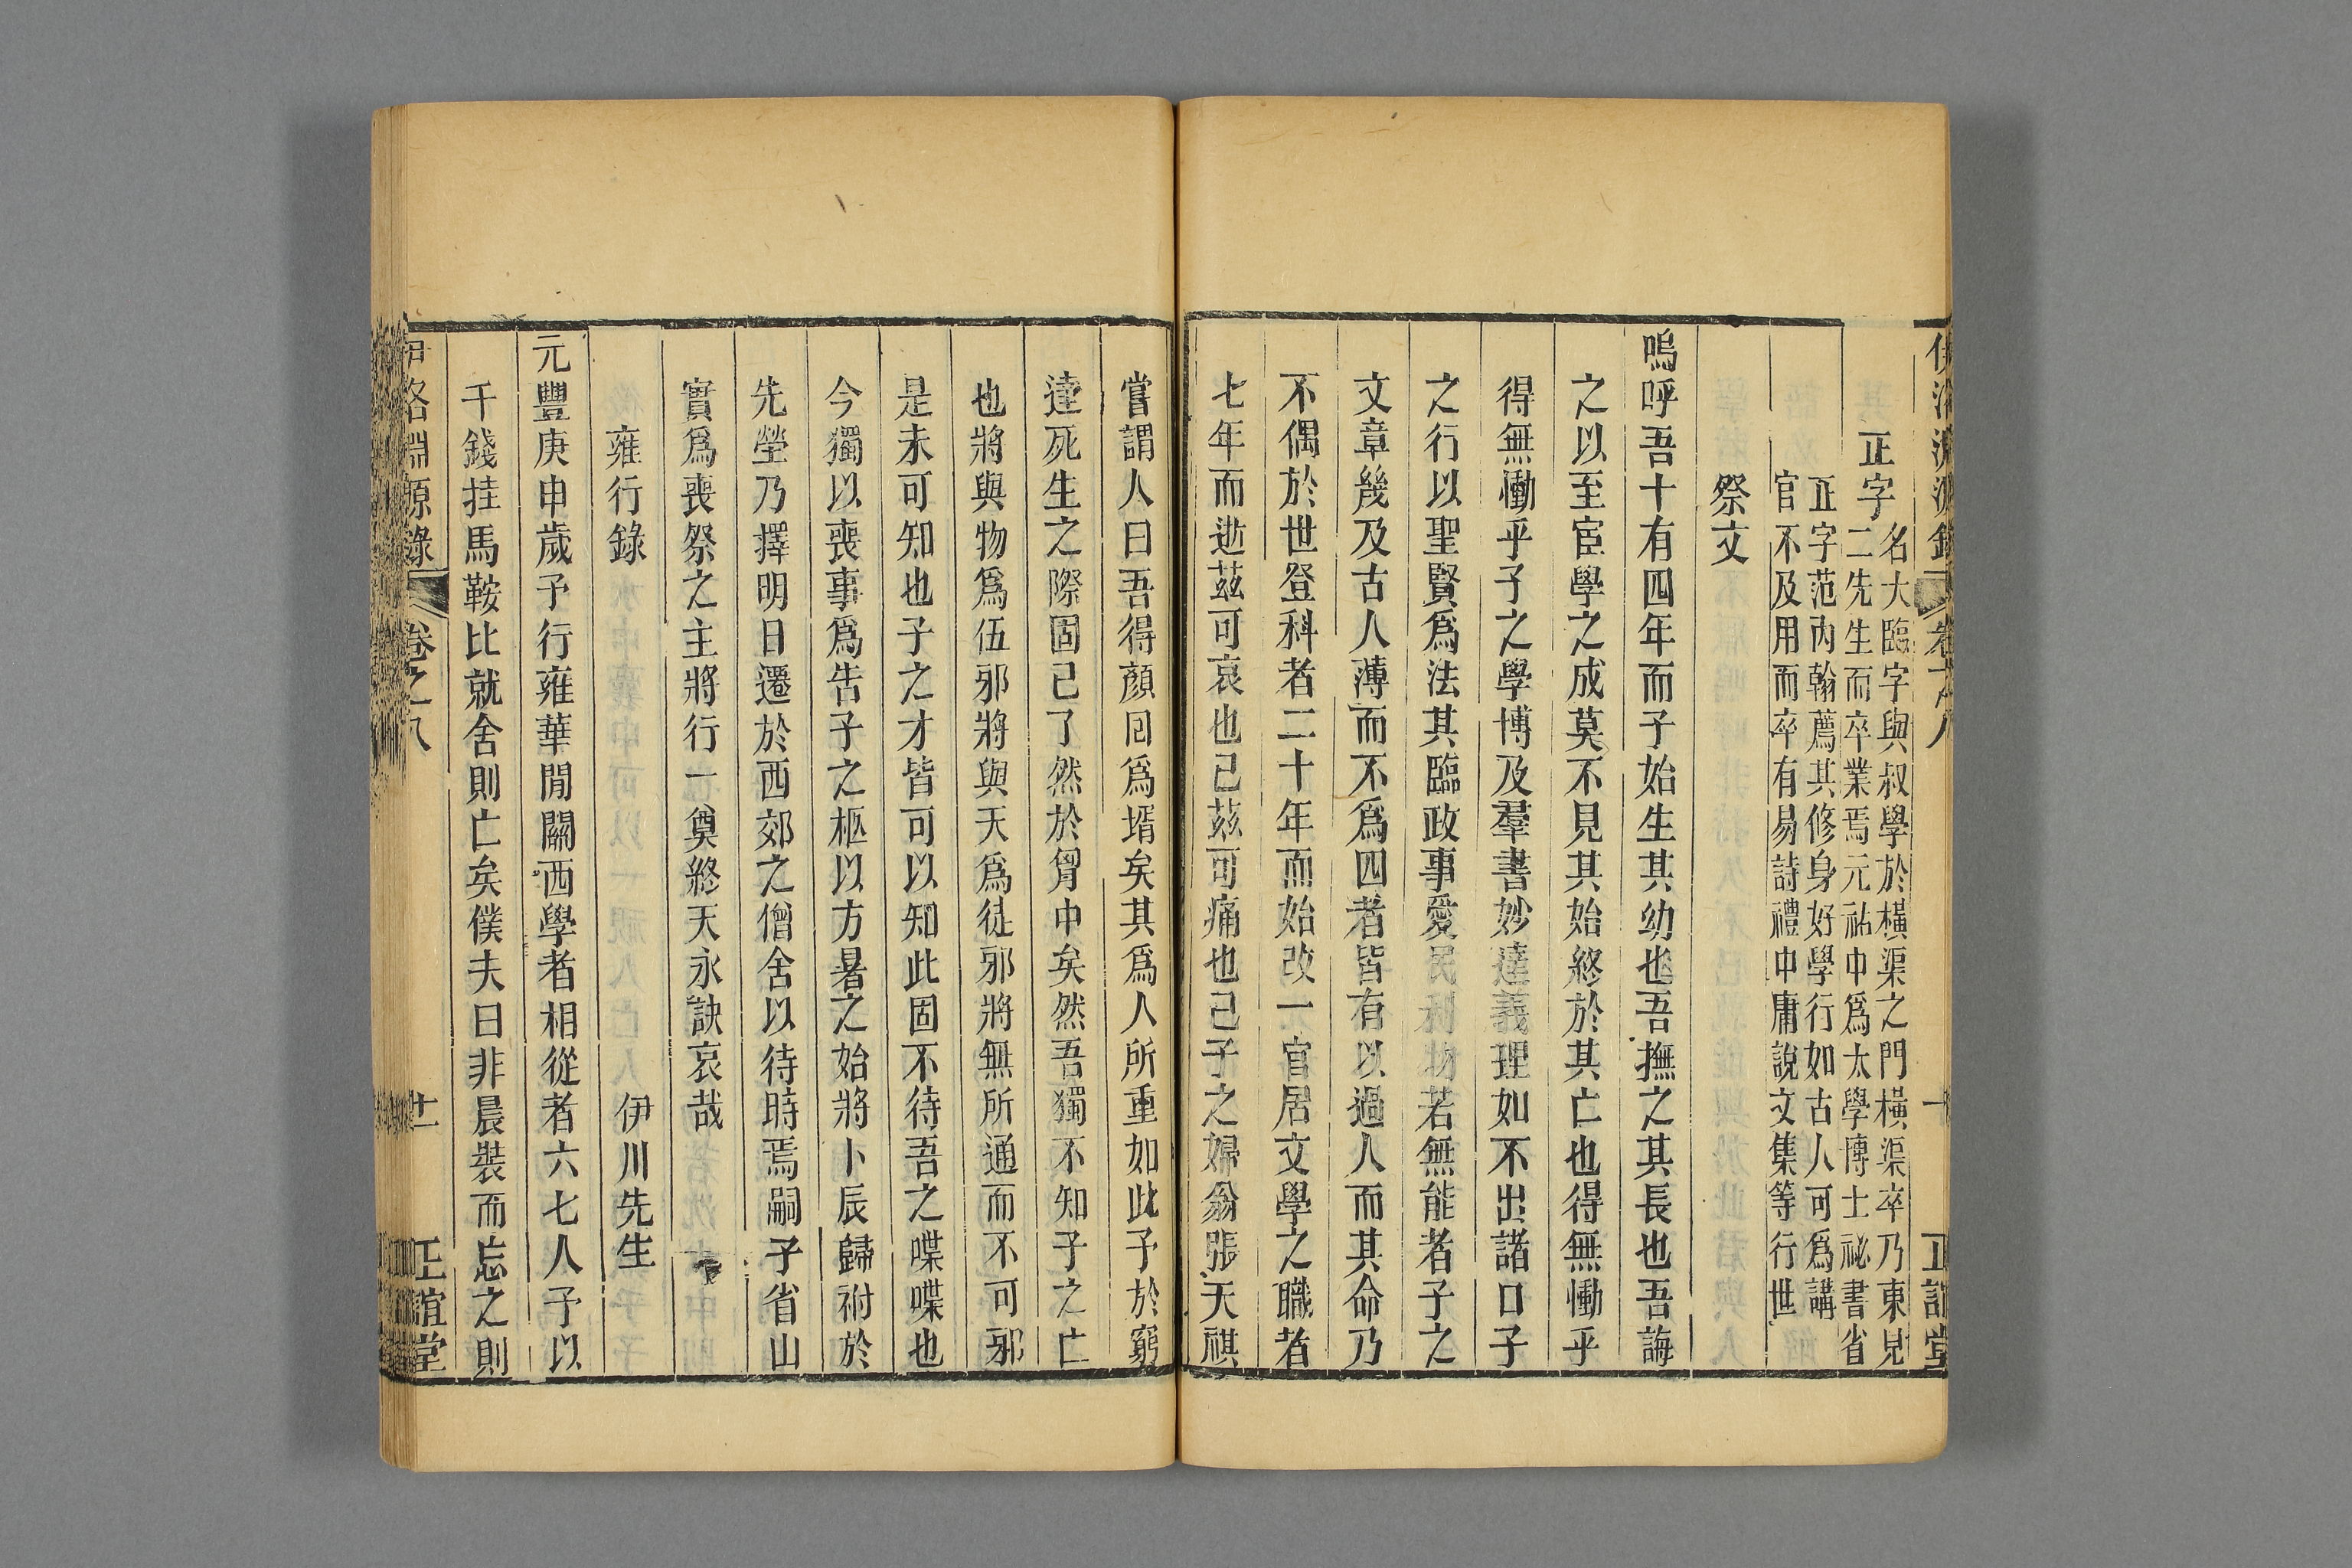 伊洛淵源錄 卷之八 十 正誼堂
正字
名大臨字與叔學於橫渠之門橫渠卒乃東見
二先生而卒業焉元祐中爲太學博士祕書省
正字范內翰薦其修身好學行如古人可爲講
官不及用而卒有易詩禮中庸說文集等行世
祭文
嗚呼吾十有四年而子始生其幼也吾撫之其長也吾誨
之以至宦學之成莫不見其始終於其亡也得無慟乎
得無慟乎子之學博及羣書妙達義理如不出諸口子
之行以聖賢爲法其臨政事愛民利物若無能者子之
文章幾及古人薄而不爲四者皆有以過人而其命乃
不偶於世登科者二十年而始改一官居文學之職者
七年而逝茲可哀也已茲可痛也已子之婦翁張天祺
嘗謂人曰吾得顏回爲壻矣其爲人所重如此子於窮
達死生之際固已了然於胷中矣然吾獨不知子之亡
也將與物爲伍邪將與天爲徒邪將無所通而不可邪
是未可知也子之才皆可以知此固不待吾之喋喋也
今獨以喪事爲告子之柩以方暑之始將卜辰歸祔於
先塋乃擇明日遷於西郊之僧舍以待時焉嗣子省山
實爲喪祭之主將行一奠終天永訣哀哉
雍行錄 伊川先生
元豐庚申歲予行雍華閒關西學者相從者六七人予以
千錢挂馬鞍比就舍則亡矣僕夫曰非晨裝而忘之則
伊洛淵源錄 卷之八 十一 正誼堂